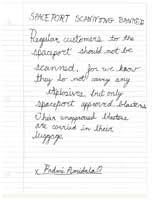 SPACEPORT SCANNING BANNED
Regular customers to the
spaceport should not be
scanned, for we know
they do not carry any
explosives, but only
spaceport approved blasters.
Their unapproved blasters
are carried in their
luggage.
x Padmé Amidala